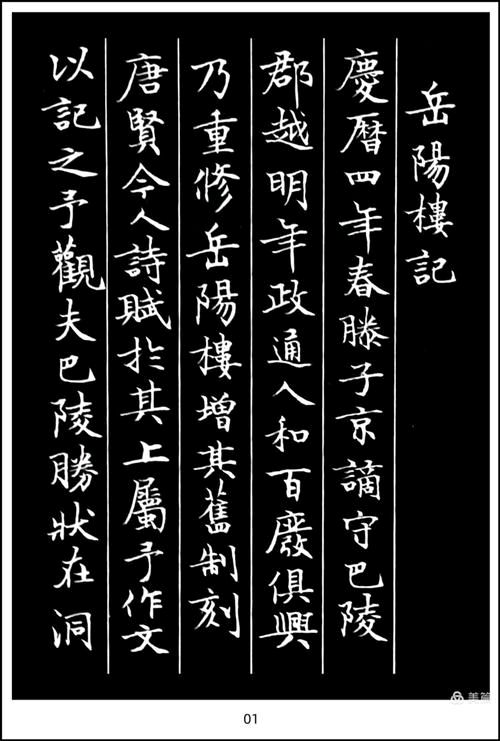 岳陽樓記
慶曆四年春滕子京謫守巴陵
郡越明年政通人和百廢俱興
乃重修岳陽樓增其舊制刻
唐賢今人詩賦於其上屬予作文
以記之予觀夫巴陵勝狀在洞
美篇
01